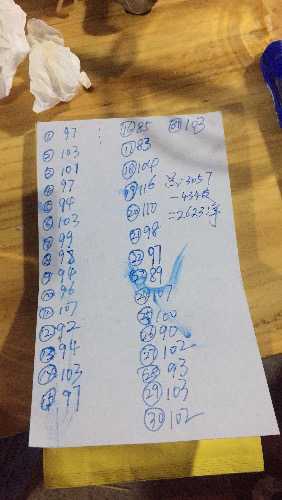 ① 97
② 103
③ 101
④ 97
⑤ 94
⑥ 103
⑦ 99
⑧ 98
⑨ 94
⑩ 96
⑪ 107
⑫ 92
⑬ 94
⑭ 103
⑮ 97
⑯ 85
⑰ 83
⑱ 104
⑲ 116
⑳ 110
㉑ 98
㉒ 97
㉓ 89
㉔ 107
㉕ 100
㉖ 90
㉗ 102
㉘ 93
㉙ 103
㉚ 102
㉛ 103
总:3057
-434皮
=2623净